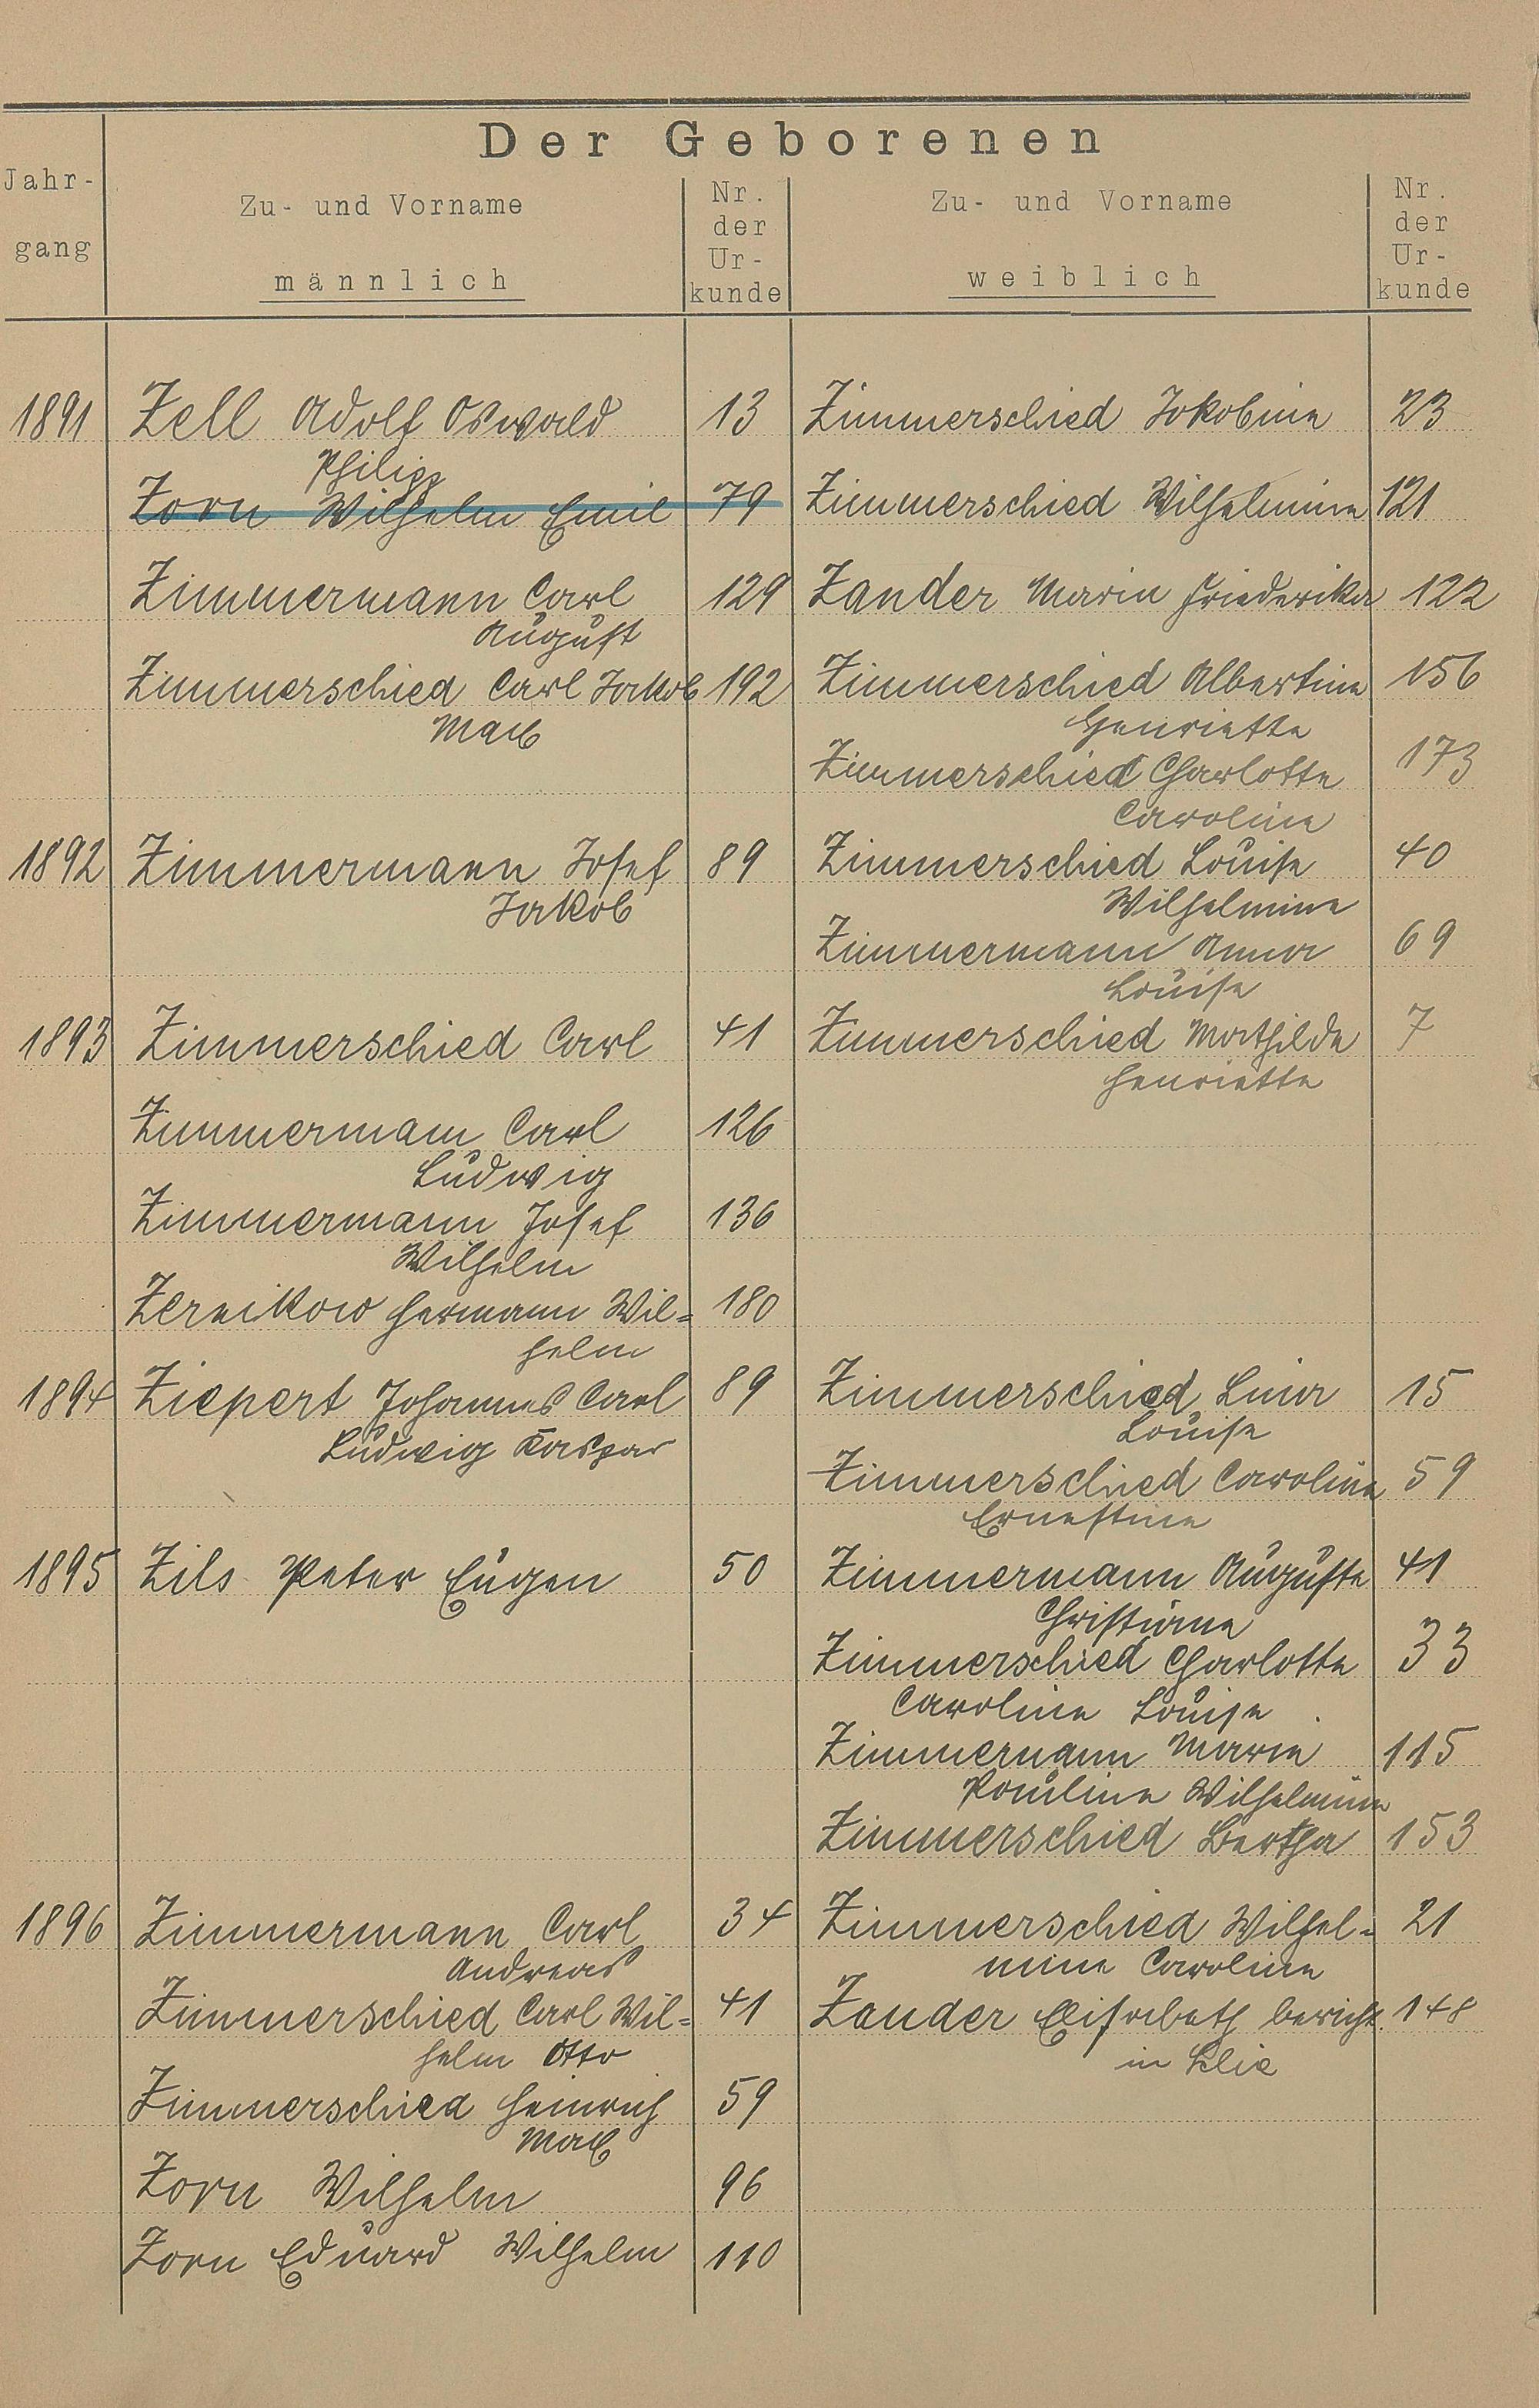 Der Geborenen
Jahr-
gang
Zu- und Vorname
männlich
Nr.
der
Ur-
kunde
Zu- und Vorname
weiblich
Nr.
der
Ur-
kunde
1891 Zell Adolf Oswald 13 Zimmerschied Jakobine 23
Philipp
Zorn Wilhelm Emil 79 Zimmerschied Wilhelmine 121
Zimmermann Carl 129 Zander Marie Friederike 122
August
Zimmerschied Carl Jakob 192 Zimmerschied Albertine 156
Max Henriette
Zimmerschied Charlotte 173
Caroline
1892 Zimmermann Josef 89 Zimmerschied Louise 40
Jakob Wilhelmine
Zimmermann Anna 69
Louise
1893 Zimmerschied Carl 41 Zimmerschied Mathilde 7
Henriette
Zimmermann Carl 126
Ludwig
Zimmermann Josef 136
Wilhelm
Zernikow Hermann Wil= 180
helm
1894 Ziepert Johannes Carl 89 Zimmerschied Lina 15
Ludwig Kaspar Louise
Zimmerschied Caroline 59
Ernestine
1895 Zils Peter Eugen 50 Zimmermann Auguste 41
Christiane
Zimmerschied Charlotte 33
Caroline Louise
Zimmermann Marie 115
Pauline Wilhelmine
Zimmerschied Bertha 153
1896 Zimmermann Carl 34 Zimmerschied Wilhel= 21
Andreas mine Caroline
Zimmerschied Carl Wil= 41 Zander Elisabeth bericht. 148
helm Otto in
Zimmerschied Heinrich 59
Max
Zorn Wilhelm 96
Zorn Eduard Wilhelm 110